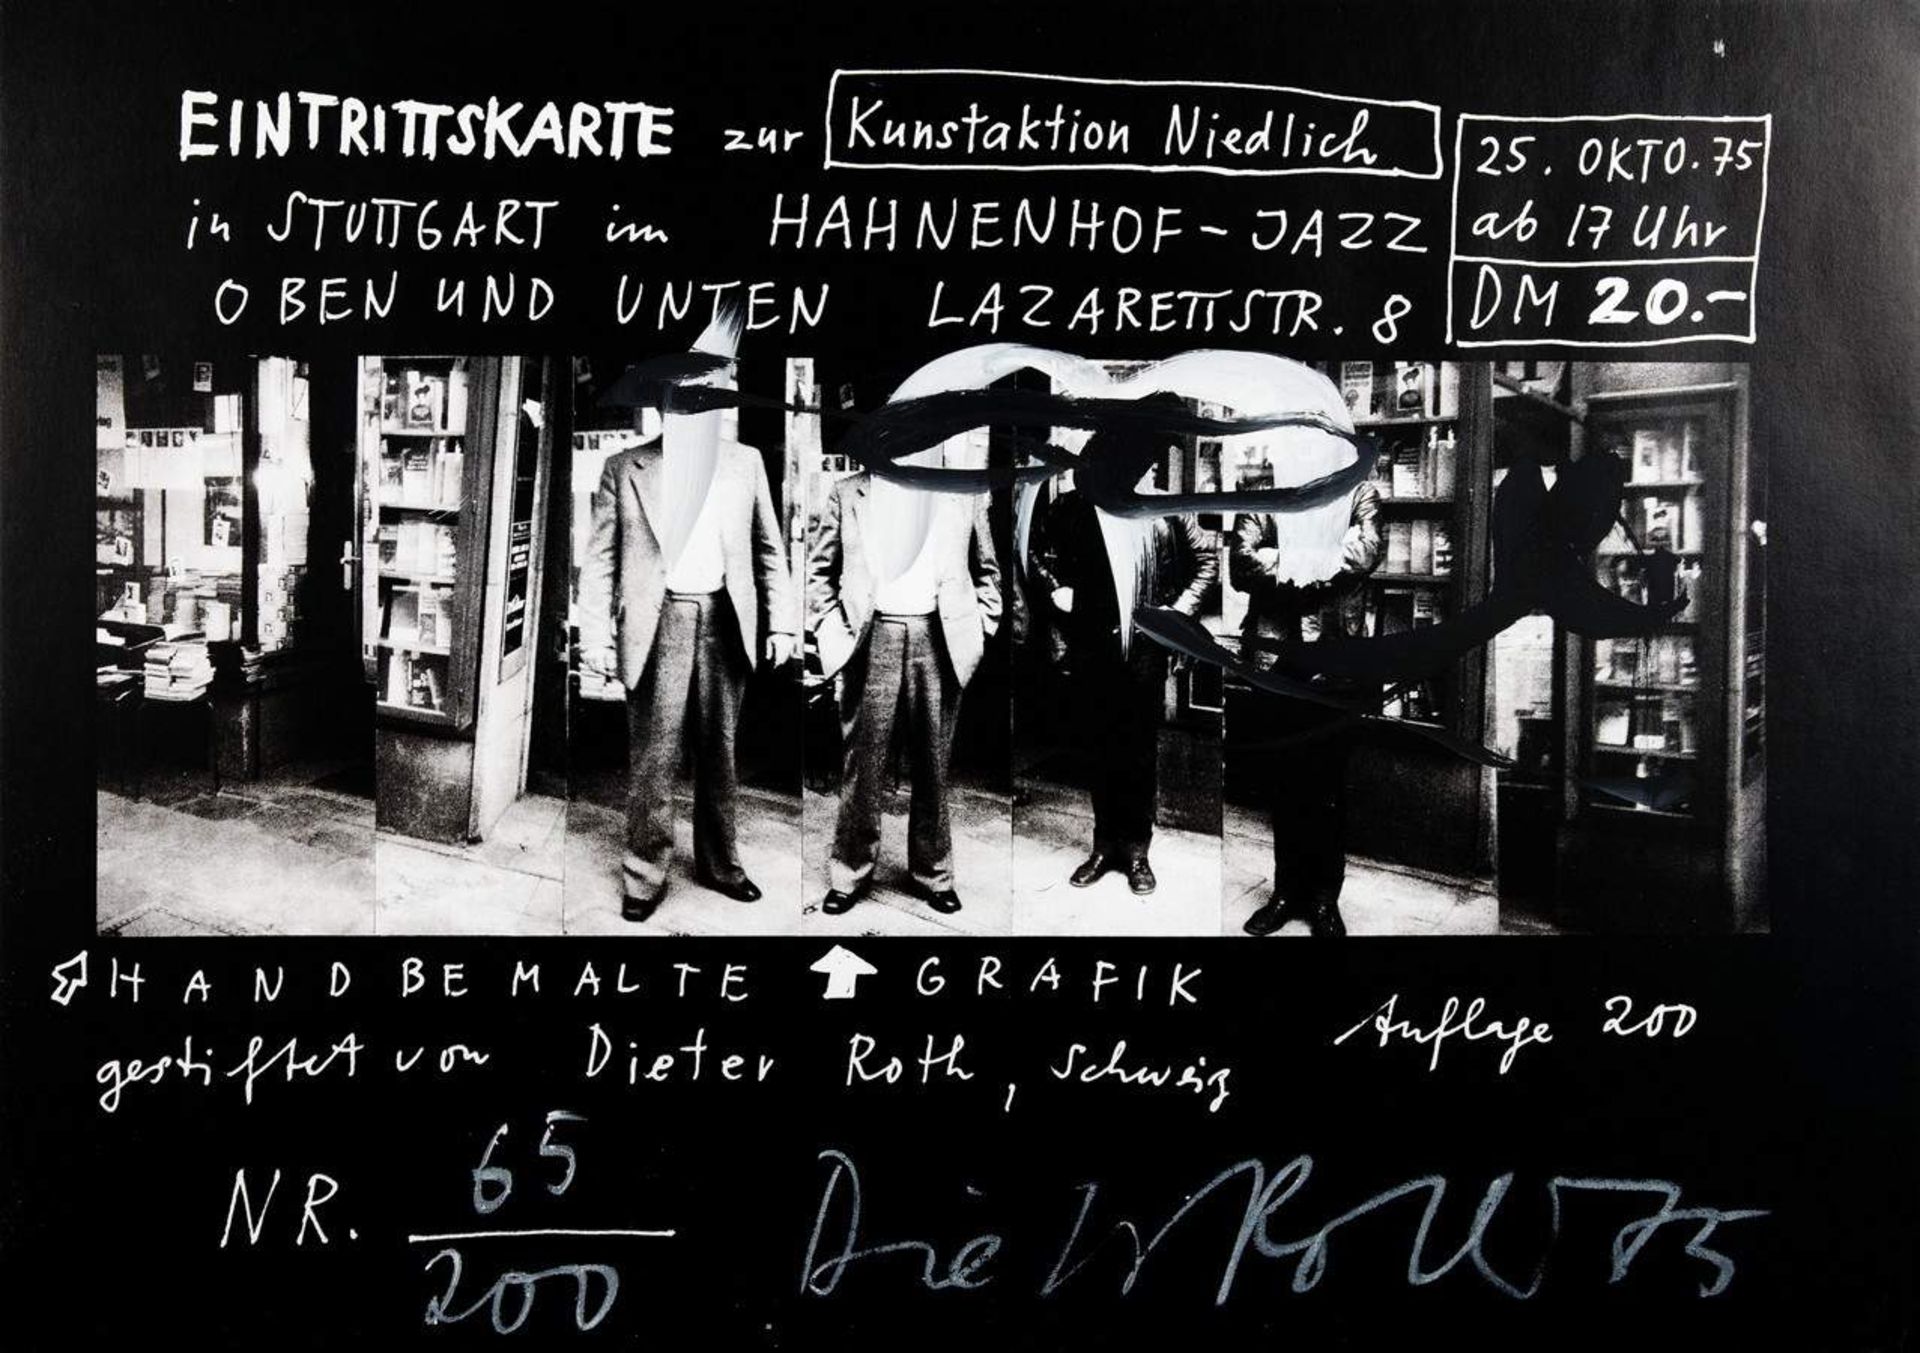 EINTRITTSKARTE zur Kunstaktion Niedlich
25. OKTO. 75
in STUTTGART im HAHNENHOF-JAZZ
ab 17 Uhr
OBEN UND UNTEN LAZARETTSTR. 8
DM 20.-
HANDBEMALTE GRAFIK
Auflage 200
gestiftet von Dieter Roth, Schweiz
NR. 65
200
Dieter Roth 75